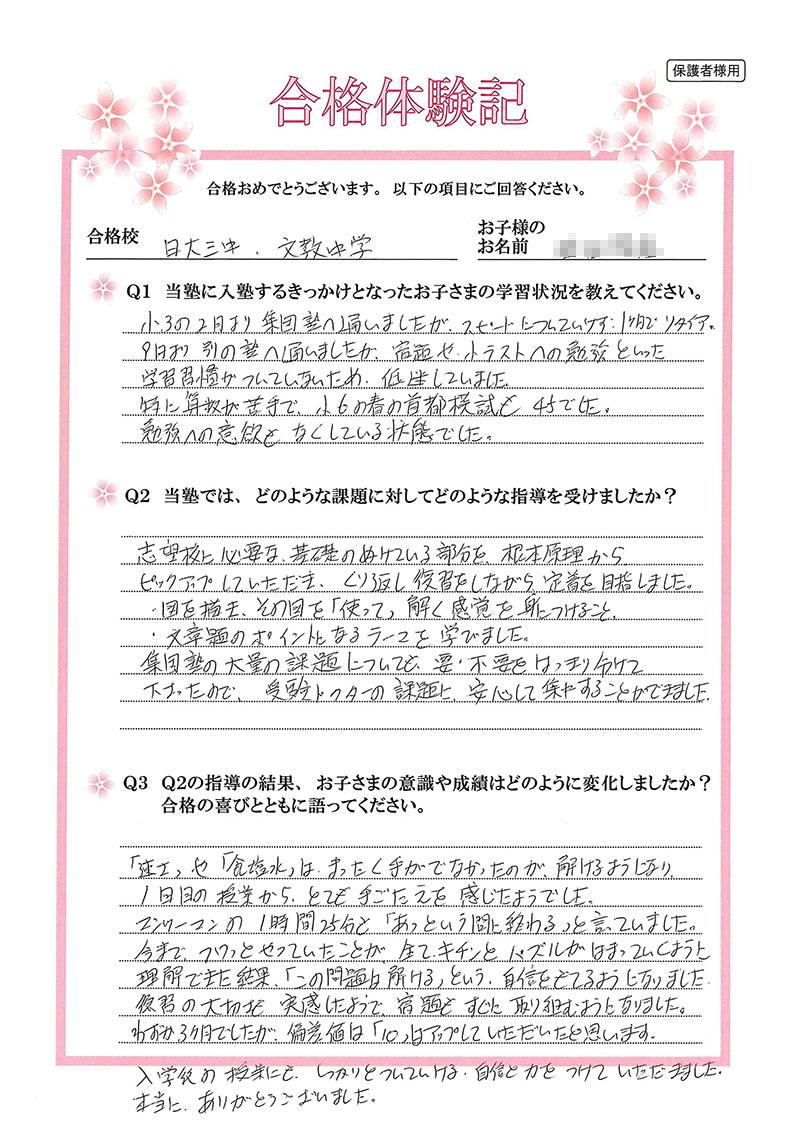 保護者様用
合格体験記
合格おめでとうございます。以下の項目にご回答ください。
合格校 日大三中、文教中学
お子様の
お名前
Q1 当塾に入塾するきっかけとなったお子さまの学習状況を教えてください。
小3の2月より集団塾へ通いましたが、スピードについていけず、1ヶ月でリタイア。
9月より別の塾へ通いましたが、宿題や、小テストへの勉強といった
学習習慣がついていないため、低迷していました。
特に算数が苦手で、小6の春の首都模試も45でした。
勉強への意欲もなくしている状態でした。
Q2 当塾では、どのような課題に対してどのような指導を受けましたか？
志望校に必要な、基礎のぬけている部分を、根本原理から
ピックアップしていただき、くり返し復習をしながら、定着を目指しました。
・図を描き、その図を「使って」解く感覚を身につけること、
・文章題のポイントとなるテーマを学びました。
集団塾の大量の課題についても、要・不要をはっきり分けて
下さったので、受験ドクターの課題に、安心して集中することができました。
Q3 Q2の指導の結果、お子さまの意識や成績はどのように変化しましたか？
合格の喜びとともに語ってください。
「速さ」や「食塩水」は、まったく手がでなかったのが、解けるようになり、
1日目の授業から、とても手ごたえを感じたようでした。
マンツーマンの1時間25分も「あっという間に終わる」と言っていました。
今まで、フワっとやっていたことが、全て、キチンとパズルがはまっていくように
理解できた結果、「この問題は解ける」という、自信をもてるようになりました。
復習の大切さも実感したようで、宿題もすぐに取り組むようになりました。
わずか3ヶ月でしたが、偏差値は「10」はアップしていただいたと思います。
入学後の授業にも、しっかりとついていける、自信と力をつけていただきました。
本当に、ありがとうございました。